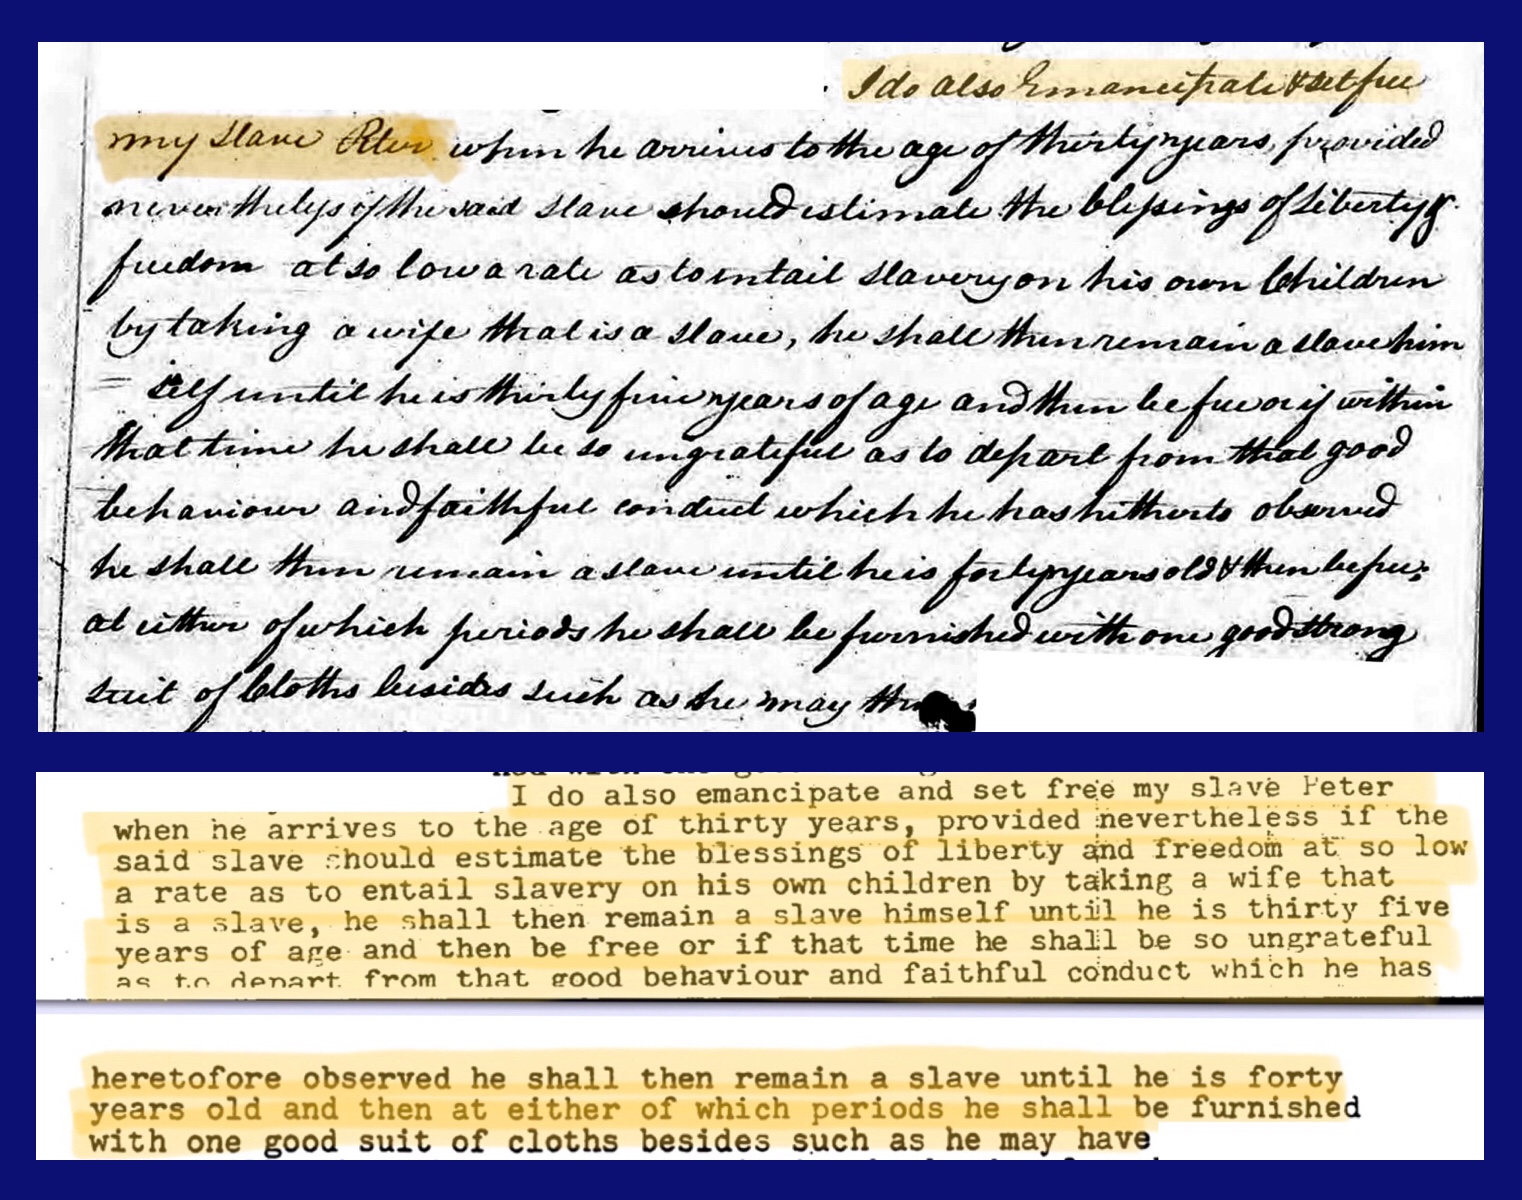 I do also Emancipate & set free
my slave Peter when he arrives to the age of thirty years, provided
nevertheless if the said slave should estimate the blessings of Liberty &
freedom at so low a rate as to entail slavery on his own Children
by taking a wife that is a slave, he shall then remain a slave him
= self until he is thirty five years of age and then be free or if within
that time he shall be so ungrateful as to depart from that good
behaviour and faithful conduct which he has hitherto observed
he shall then remain a slave until he is forty years old & then be free;
at either of which periods he shall be furnished with one good strong
suit of Cloths besides such as he may
I do also emancipate and set free my slave Peter
when he arrives to the age of thirty years, provided nevertheless if the
said slave should estimate the blessings of liberty and freedom at so low
a rate as to entail slavery on his own children by taking a wife that
is a slave, he shall then remain a slave himself until he is thirty five
years of age and then be free or if that time he shall be so ungrateful
as to depart from that good behaviour and faithful conduct which he has
heretofore observed he shall then remain a slave until he is forty
years old and then at either of which periods he shall be furnished
with one good suit of cloths besides such as he may have